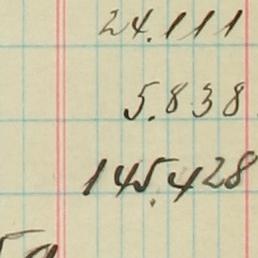 24.111
5.838
145.428